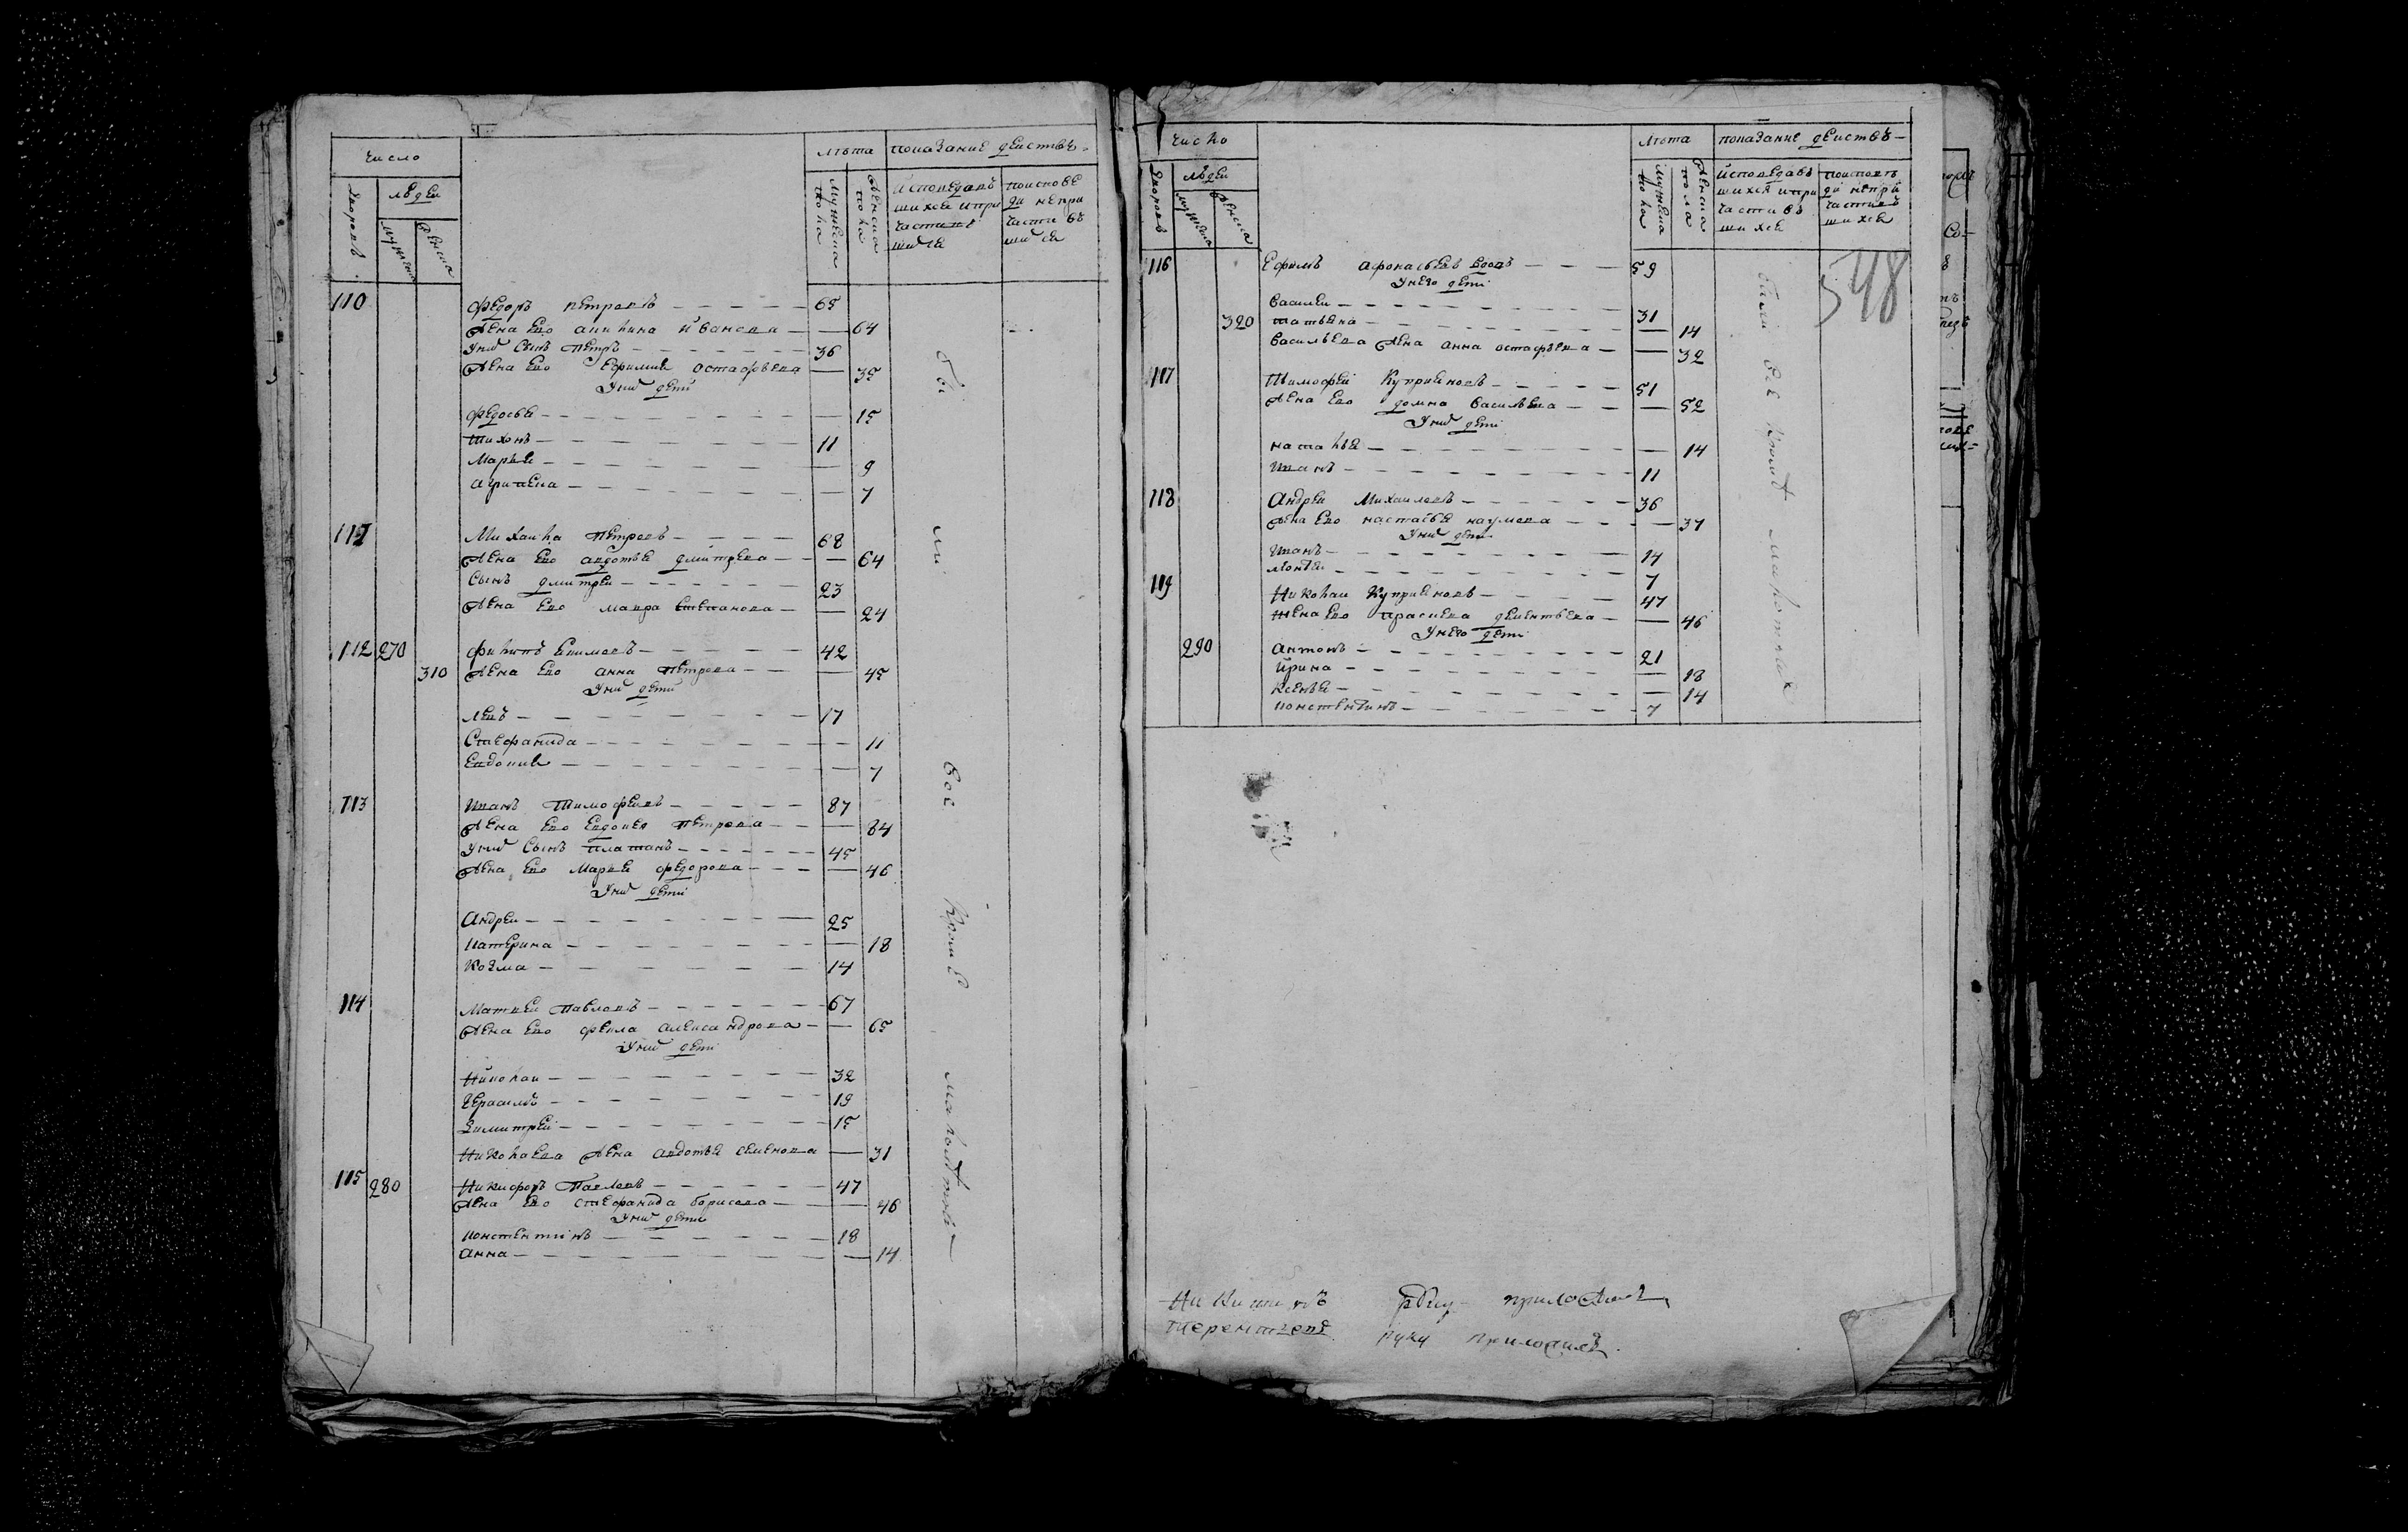 Число
лѣта показание действъ
дворовъ
людей
мужеска
женска
мужеска пола
женска пола
исповедавъ шихся и при частивъ шихся
по испове ди непри части въ шихся
110 Федоръ петровъ 65
Жена Ево акилина иванова 64
У них Сынъ петръ 36
Жена Ево Ефимия остафьева 35
У них дети
Федосья 15
тихонъ 11
Марья 9
агрипена 7
111 Михаила петровъ 68
Жена Ево авдотья дмитрева 64
Сынъ дмитреи 23
Жена Ево мавра степанова 24
112 270 филипъ Екимовъ 42
310 Жена Ево анна петрова 45
У них дети
левъ 17
Стефанида 11
Евдокия 7
113 иванъ тимофеевъ 87
Жена Ево Евдокея петрова 84
У них Сынъ платанъ 45
Жена Ево Марья федорова 46
У них дети
Андреи 25
катерина 18
Козма 14
114 Матвеи павловъ 67
Жена Ево фекла александрова 65
У них дети
Николаи 32
Герасимъ 19
Димитреи 15
Николаева Жена авдотья семенова 31
115 280 Никифоръ Павловъ 47
Жена Ево стефанида борисова 46
У них дети
констентинъ 18
анна 14
бы ли все Кроме малолтных
Число
лѣта показание действъ
дворовъ
людей
мужеска
женска
мужеска пола
женска пола
исповедавъ шихся и при частивъ шихся
по исповѣ ди непри частивъ шихся
548
116 Ефимъ афонасьевъ вдовъ 59
У него дети
василеи 31
320 татьяна 14
васильева Жена анна остафьева 32
117 Тимофеи Куприяновъ 51
Жена Ево домна васильева 52
У них дети
наталья 14
иванъ 11
118 Андреи Михаиловъ 36
Жена Ево настасья наумова 37
У них дети
иванъ 14
леонтеи 7
119 Николаи Куприяновъ 47
Жена Ево прасковя дементьева 46
У него дети
290 антонъ 21
ирина 18
ксенья 14
констентинъ 7
были все Кроме малолтных
Никитинъ руку приложилъ
терентиевъ руку приложилъ